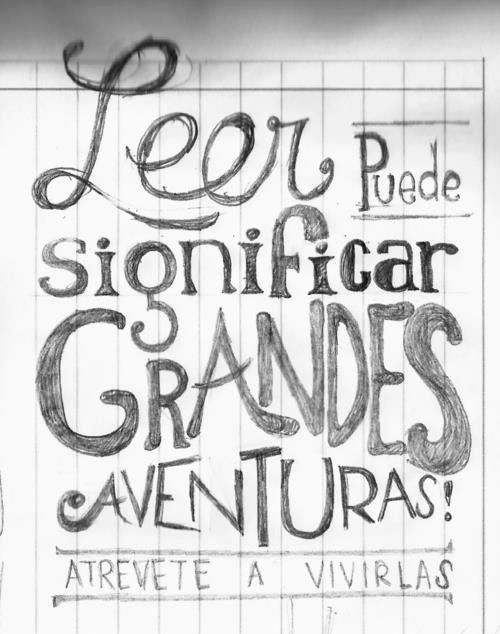 Leer Puede
significar
GRANDES
AVENTURAS!
ATREVETE A VIVIRLAS